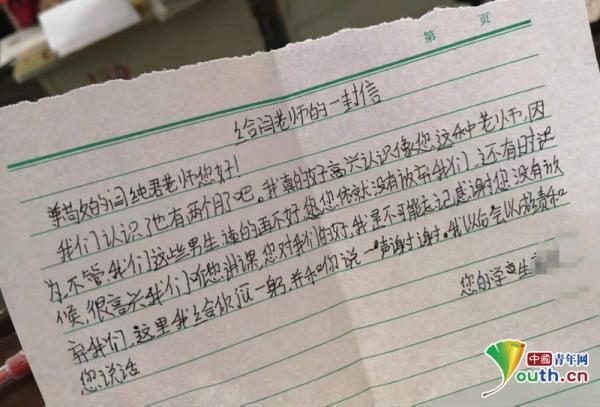 第 页
给闫老师的一封信
尊敬的闫纯君老师您好!
我们认识了也有两个月了吧。我真的好高兴认识像您这种老师,因
为,不管我们这些男生读的再不好,您您依就没有放弃我们,还有时
候,很高兴我们听您讲课,您对我们的好,我是不可能忘记感谢您没有放
弃我们,这里我给你沉一躬,并和你说一声谢谢。我以后会以成责和
您说话
您的学生
中國青年网
Youth.cn